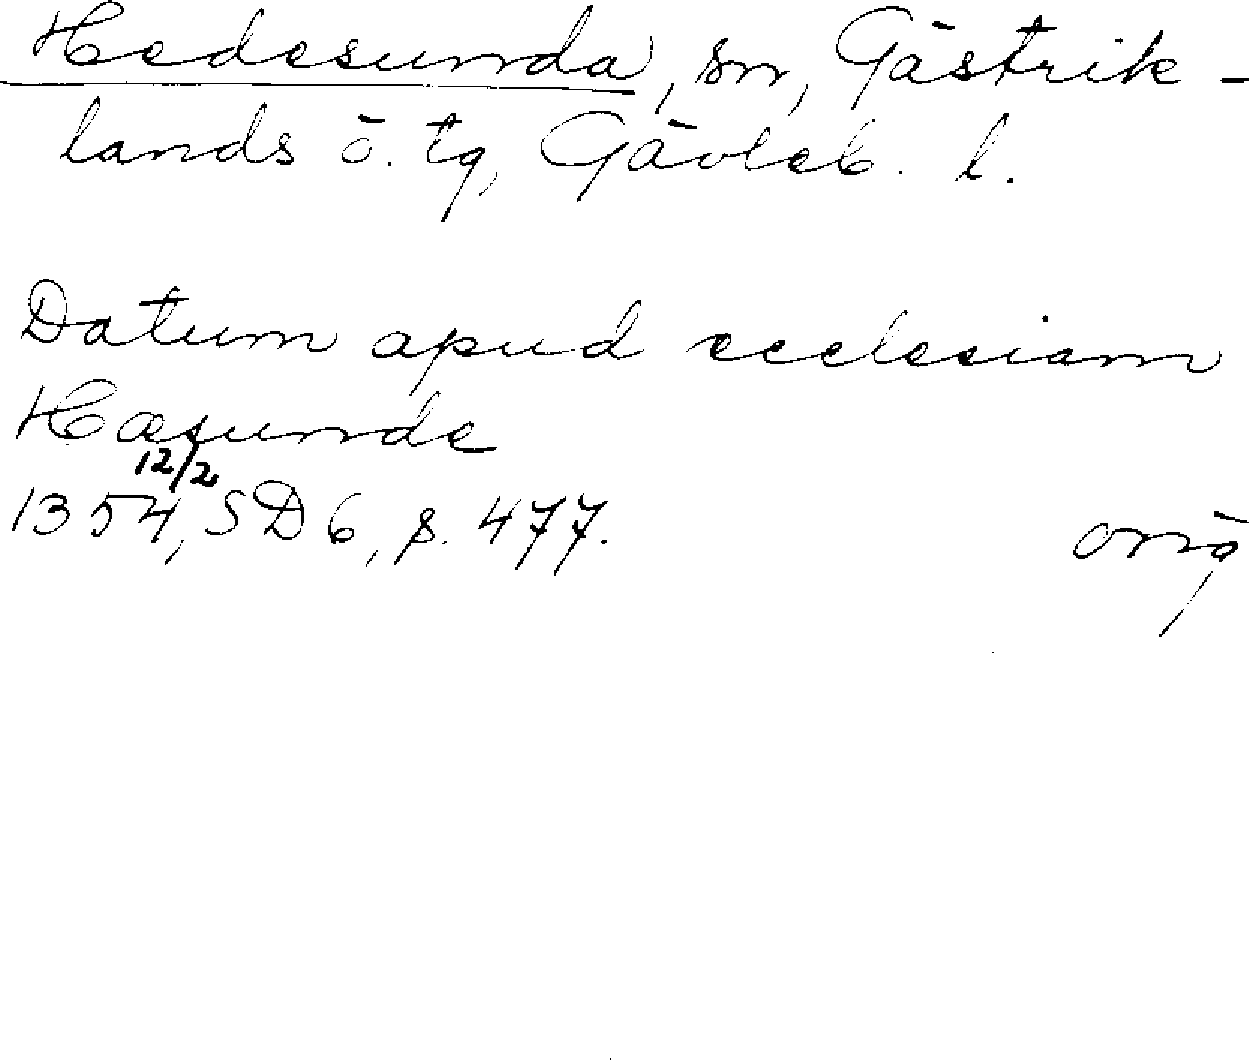 Hedesunda, sn, Gästrik-
lands ö. tg, Gävleb. l.
Datum apud ecclesiam
Hæsunde
12/2
1354, SD 6, s. 477.
orig